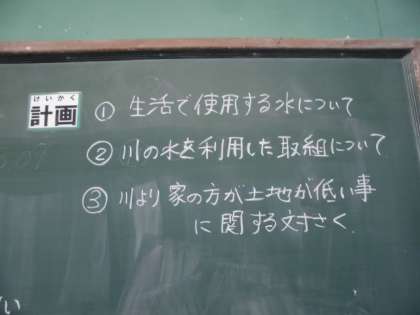 けいかく
計画
① 生活で使用する水について
② 川の水を利用した取組について
③ 川より家の方が土地が低い事
に関する対さく.
い